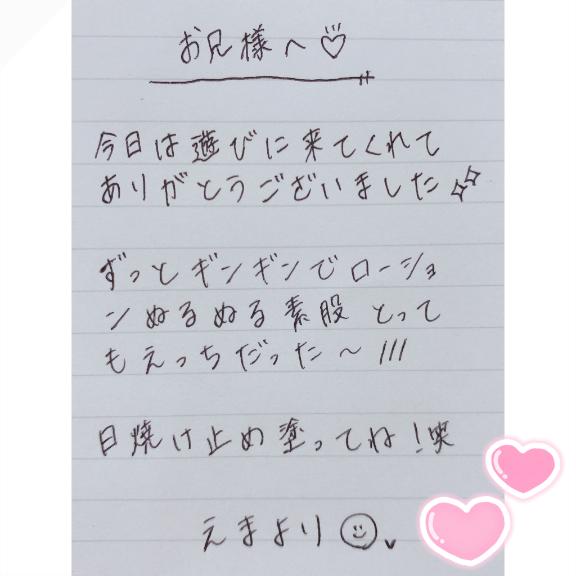 お兄様へ♡
今日は遊びに来てくれて
ありがとうございました✨
ずっとギンギンでローショ
ンぬるぬる素股とって
もえっちだった〜///
日焼け止め塗ってね！笑
えまより☺